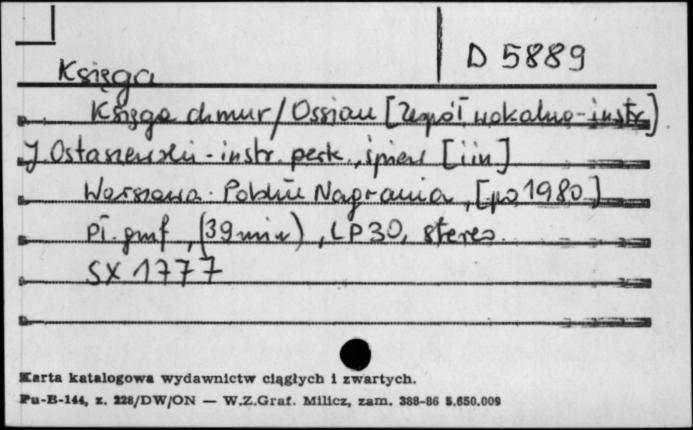 D 5889
Księga
Księga chmur / Ossian [Zespół wokalno-instr.]
J Ostaszewski - instr. perk., śpiew [i in]
Warszawa: Polskie Nagrania, [po 1980]
Pł. gmf, (39 min), LP30, stereo.
SX 1777
Karta katalogowa wydawnictw ciągłych i zwartych.
Pu-B-144, z. 228/DW/ON — W.Z.Graf. Milicz, zam. 388-86 5.650.009